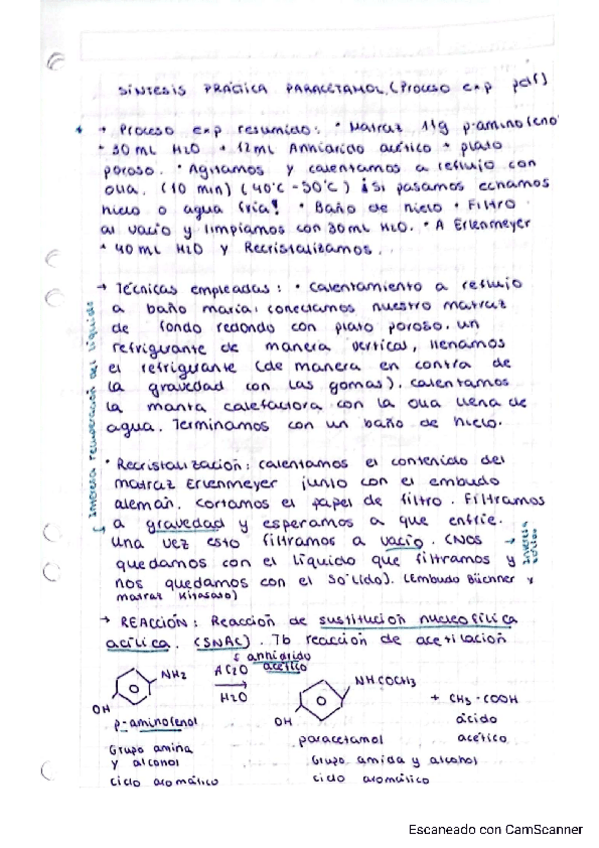 SÍNTESIS PRÁCTICA PARACETAMOL (Proceso exp pdf)
→ Proceso exp resumido: • Matraz 11g p-aminofeno
+ 30 mL H2O + 12 mL Anhidrido acético + plato
poroso. • Agitamos y calentamos a reflujo con
olla. (10 min) (40°C - 50°C) ¡Si pasamos echamos
hielo o agua fría! • Baño de hielo • Filtro
al vacío y limpiamos con 30 mL H2O. • A Erlenmeyer
+ 40 mL H2O y Recristalizamos.
→ Técnicas empleadas: • Calentamiento a reflujo
a baño maría: conectamos nuestro matraz
de fondo redondo con plato poroso. un
refrigerante de manera vertical, llenamos
el refrigerante (de manera en contra de
la gravedad con las gomas). calentamos
la manta calefactora con la olla llena de
agua. Terminamos con un baño de hielo.
• Recristalización: calentamos el contenido del
matraz Erlenmeyer junto con el embudo
alemán. cortamos el papel de filtro. Filtramos
a gravedad y esperamos a que enfríe.
Una vez esto filtramos a vacío. (Nos
quedamos con el líquido que filtramos y
nos quedamos con el sólido). (Embudo Büchner y
matraz Kitasato)
Interesa recuperación del líquido
Interesa sólido
→ REACCIÓN: Reacción de sustitución nucleofílica
acílica. (SNAc). Tb reacción de acetilación
anhidrido
NH2 AC2O acético NHCOCH3
H2O + CH3-COOH
OH OH ácido
p-aminofenol paracetamol acético
Grupo amina Grupo amida y alcohol
y alcohol ciclo aromático
ciclo aromático
Escaneado con CamScanner